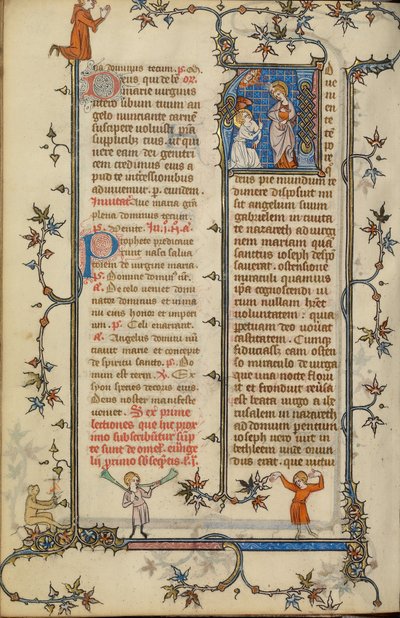 dominus tecum. ps.
Deus qui de be or.
marie virginis
utero ubum tuum an
gelo nunciante carnē
suscipere voluisti pta
supplicib; tuis. ut qui
vere eam dei genitri
cem credimus eius a
pud te intercessionibus
adiuvemur. p. eundem.
Invitat. Ave maria grā
plena dominus tecum.
ps. Venite.
Prophete predicave
runt nasci salva
torem de virgine maria.
ps. Domine dominus nr.
a. De celo veniet domi
nator dominus et in ma
nu eius honor et imperi
um. ps. Celi enarrant.
a. Angelus domini nū
ciavit marie et concepit
de spiritu sancto. ps. Do
mini est terra. a. Ex
syon species decoris eius
Deus noster manifeste
veniet. Sex prime
lectiones que hic prox
imo subscribūtur sūp
te sunt de omel. euuange
lii primo
ve
ni
en
te
tē
po
re
deus pie mundum re
dimere disposuit mi
sit angelum suum
gabrielem in civita
te nazareth ad virgi
nem mariam qua
sanctus ioseph despō
saverat. ostensione
miraculi quamvis
ipā cognoscendi vi
rum nullam hēret
voluntatem: quia
perpetuam deo voverat
castitatem. Cumq;
fiducias; eam osten
so miraculo de virga
que una nocte floru
it et fronduit reversa
est beata virgo a ihe
rusalem in nazareth
ad domum parentum
ioseph vero ivit in
bethleem unde oriun
dus erat. que virtu